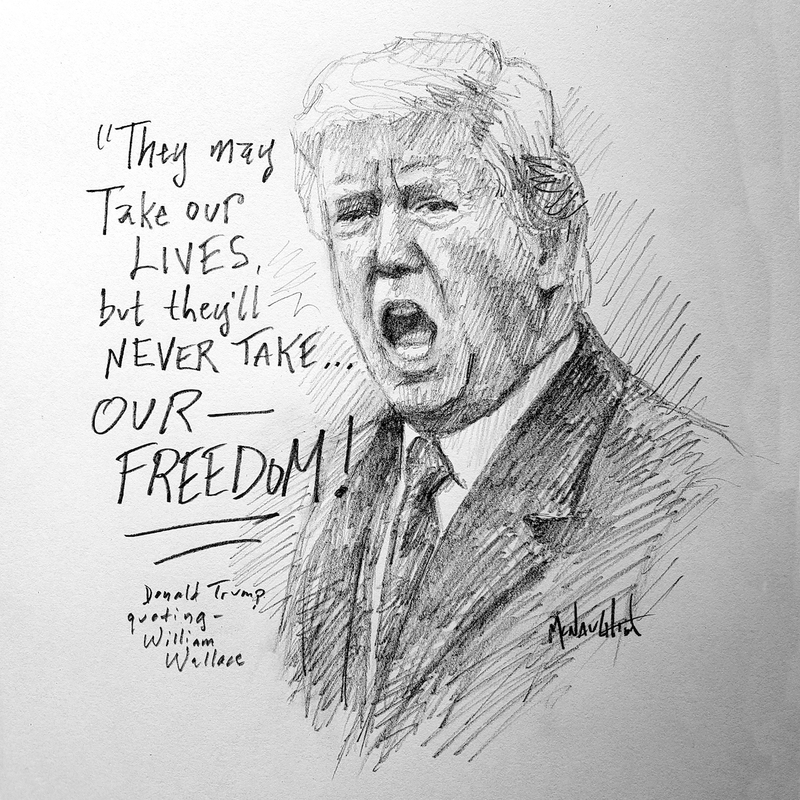 "They may
Take our
LIVES,
but they'll
NEVER TAKE...
OUR—
FREEDOM!
Donald Trump
quoting-
William
Wallace
McNaughton